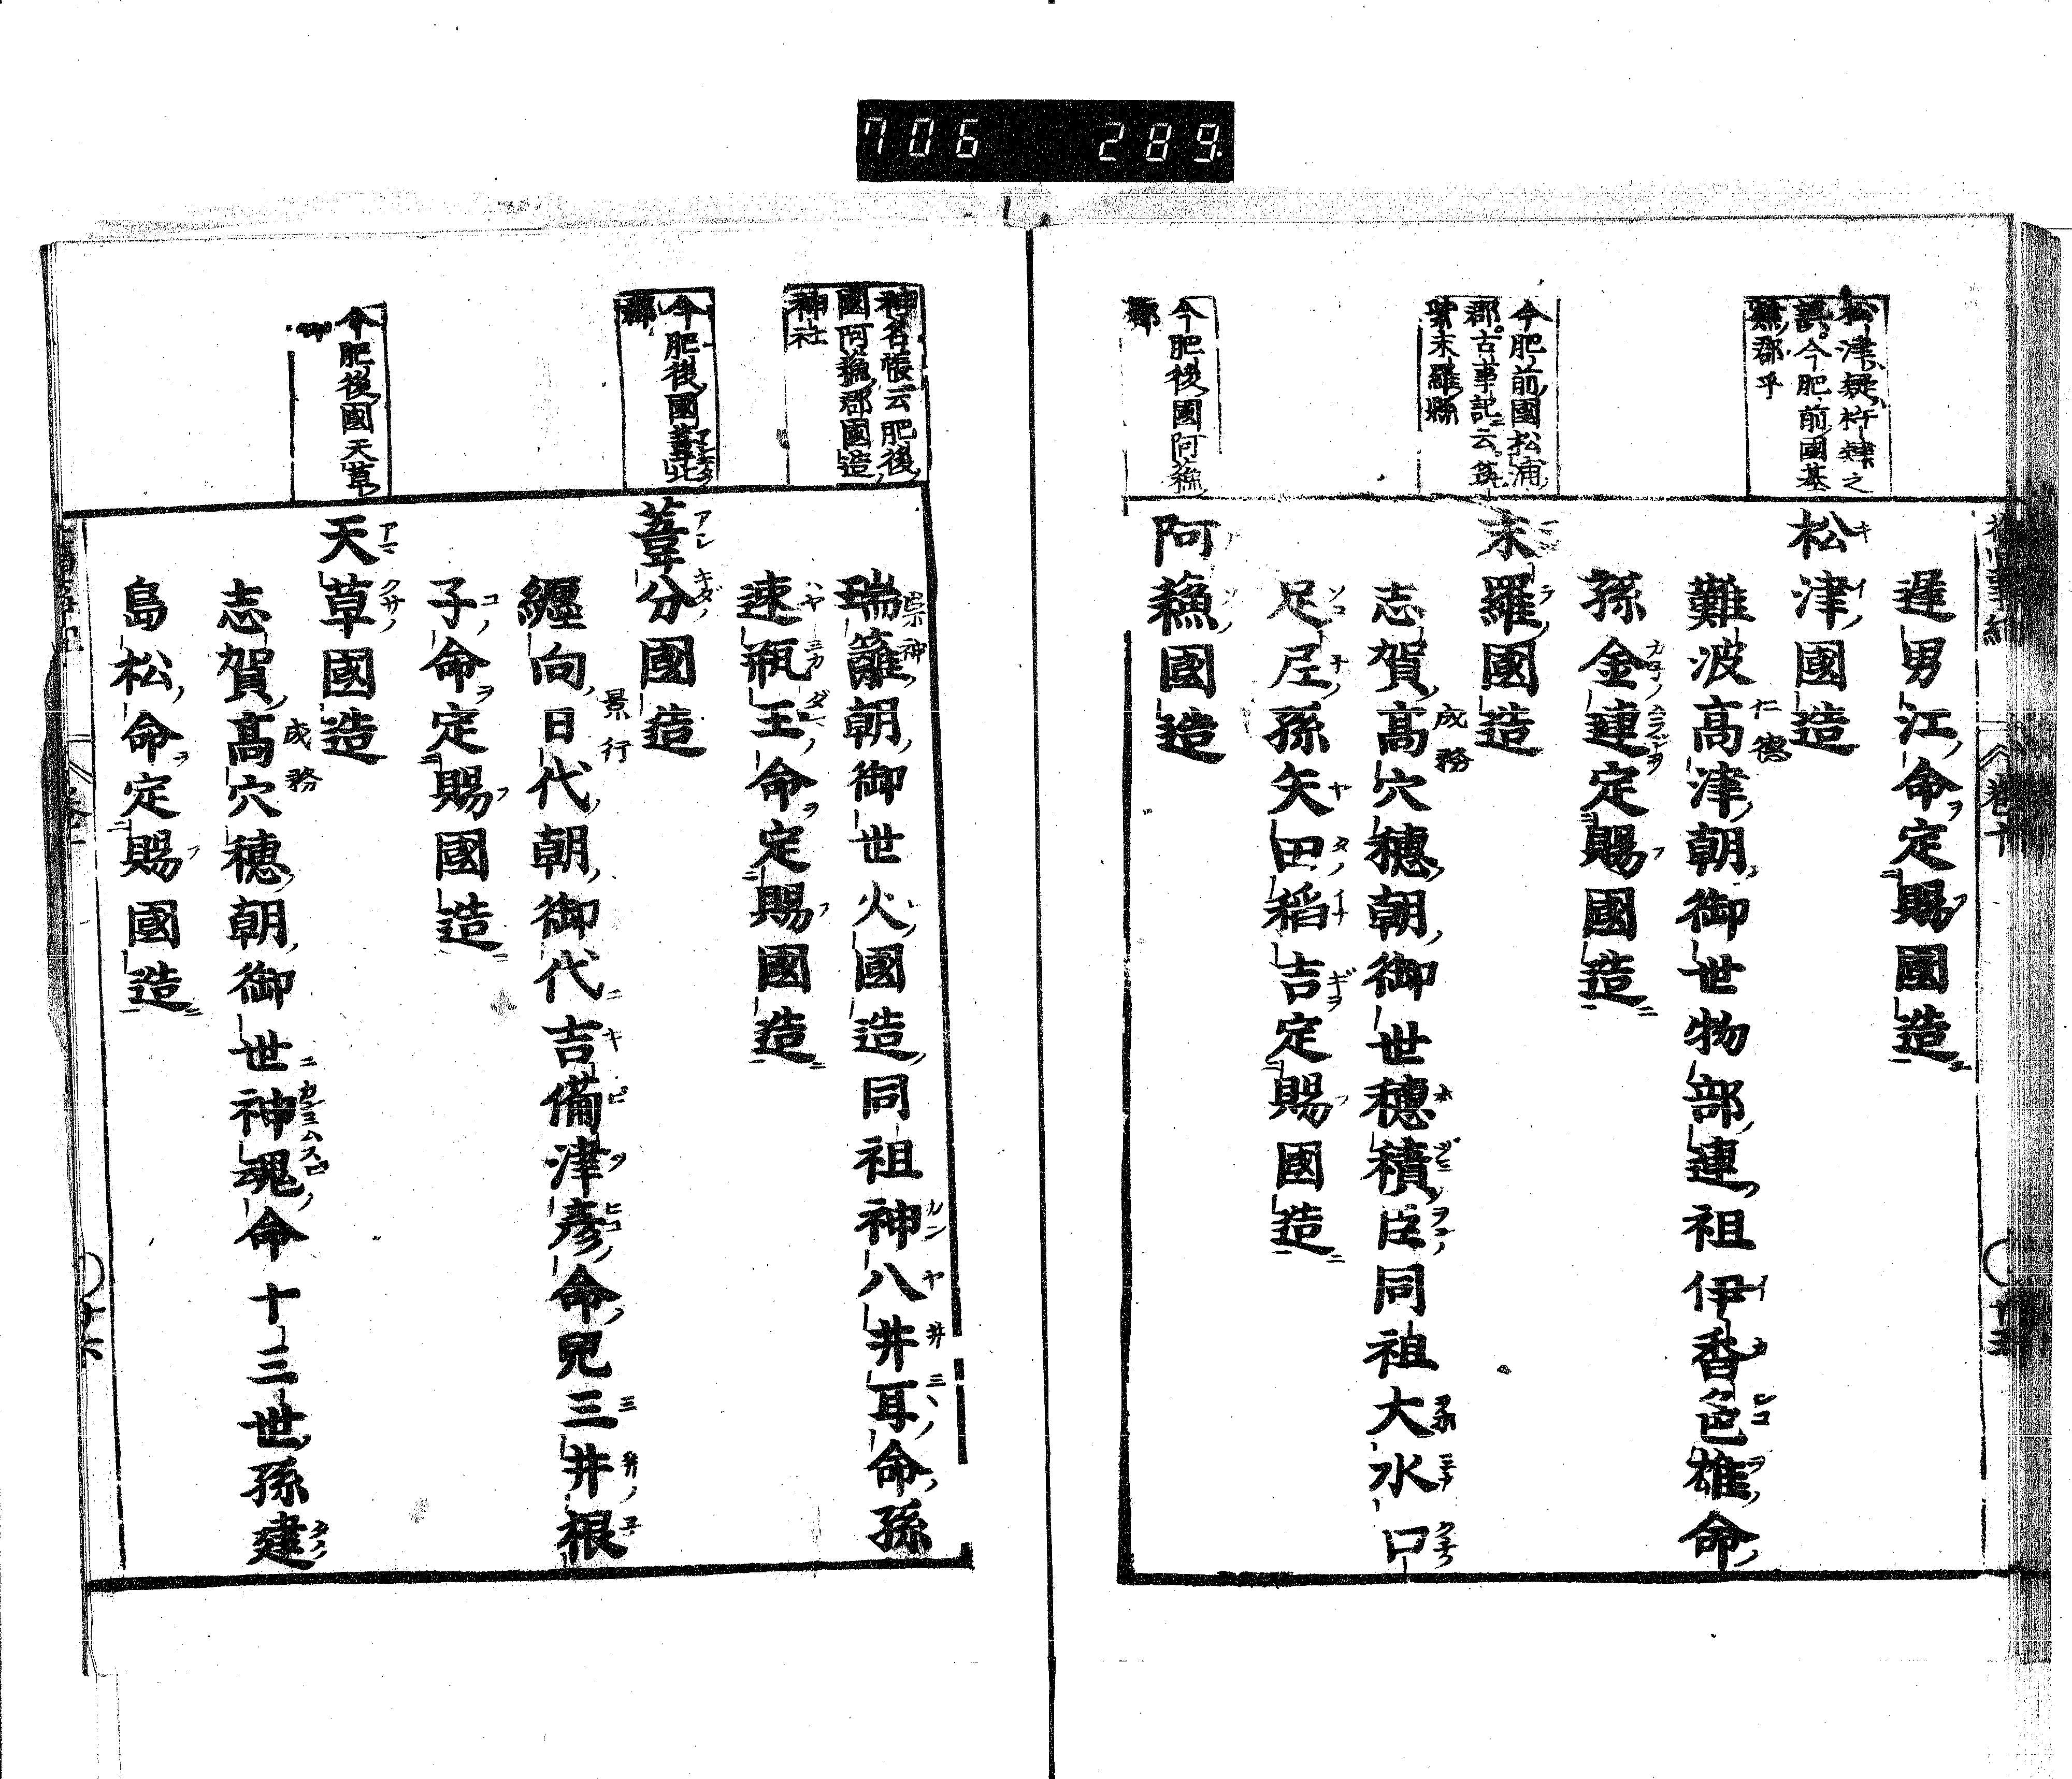 706 289
松津疑杵肄之
誤。今肥前國基
肄郡乎
遲男江命定賜國造
松津國造
難波高津朝御世物部連祖伊香色雄命
仁德
孫金連定賜國造
今肥前國松浦
郡。古事記云。筑
紫末羅縣
末羅國造
志賀高穴穗朝御世穗積臣同祖大水口
成務
足尼孫矢田稻吉定賜國造
今肥後國阿蘓
郡
阿蘓國造
神名帳云肥後
國阿蘓郡國造
神社
瑞籬朝御世火國造同祖神八井耳命孫
崇神
速瓶玉命定賜國造
今肥後國葦北
郡
葦分國造
纒向日代朝御代吉備津彥命兒三井根
景行
子命定賜國造
今肥後國天草
郡
天草國造
志賀高穴穗朝御世神魂命十三世孫建
成務
島松命定賜國造